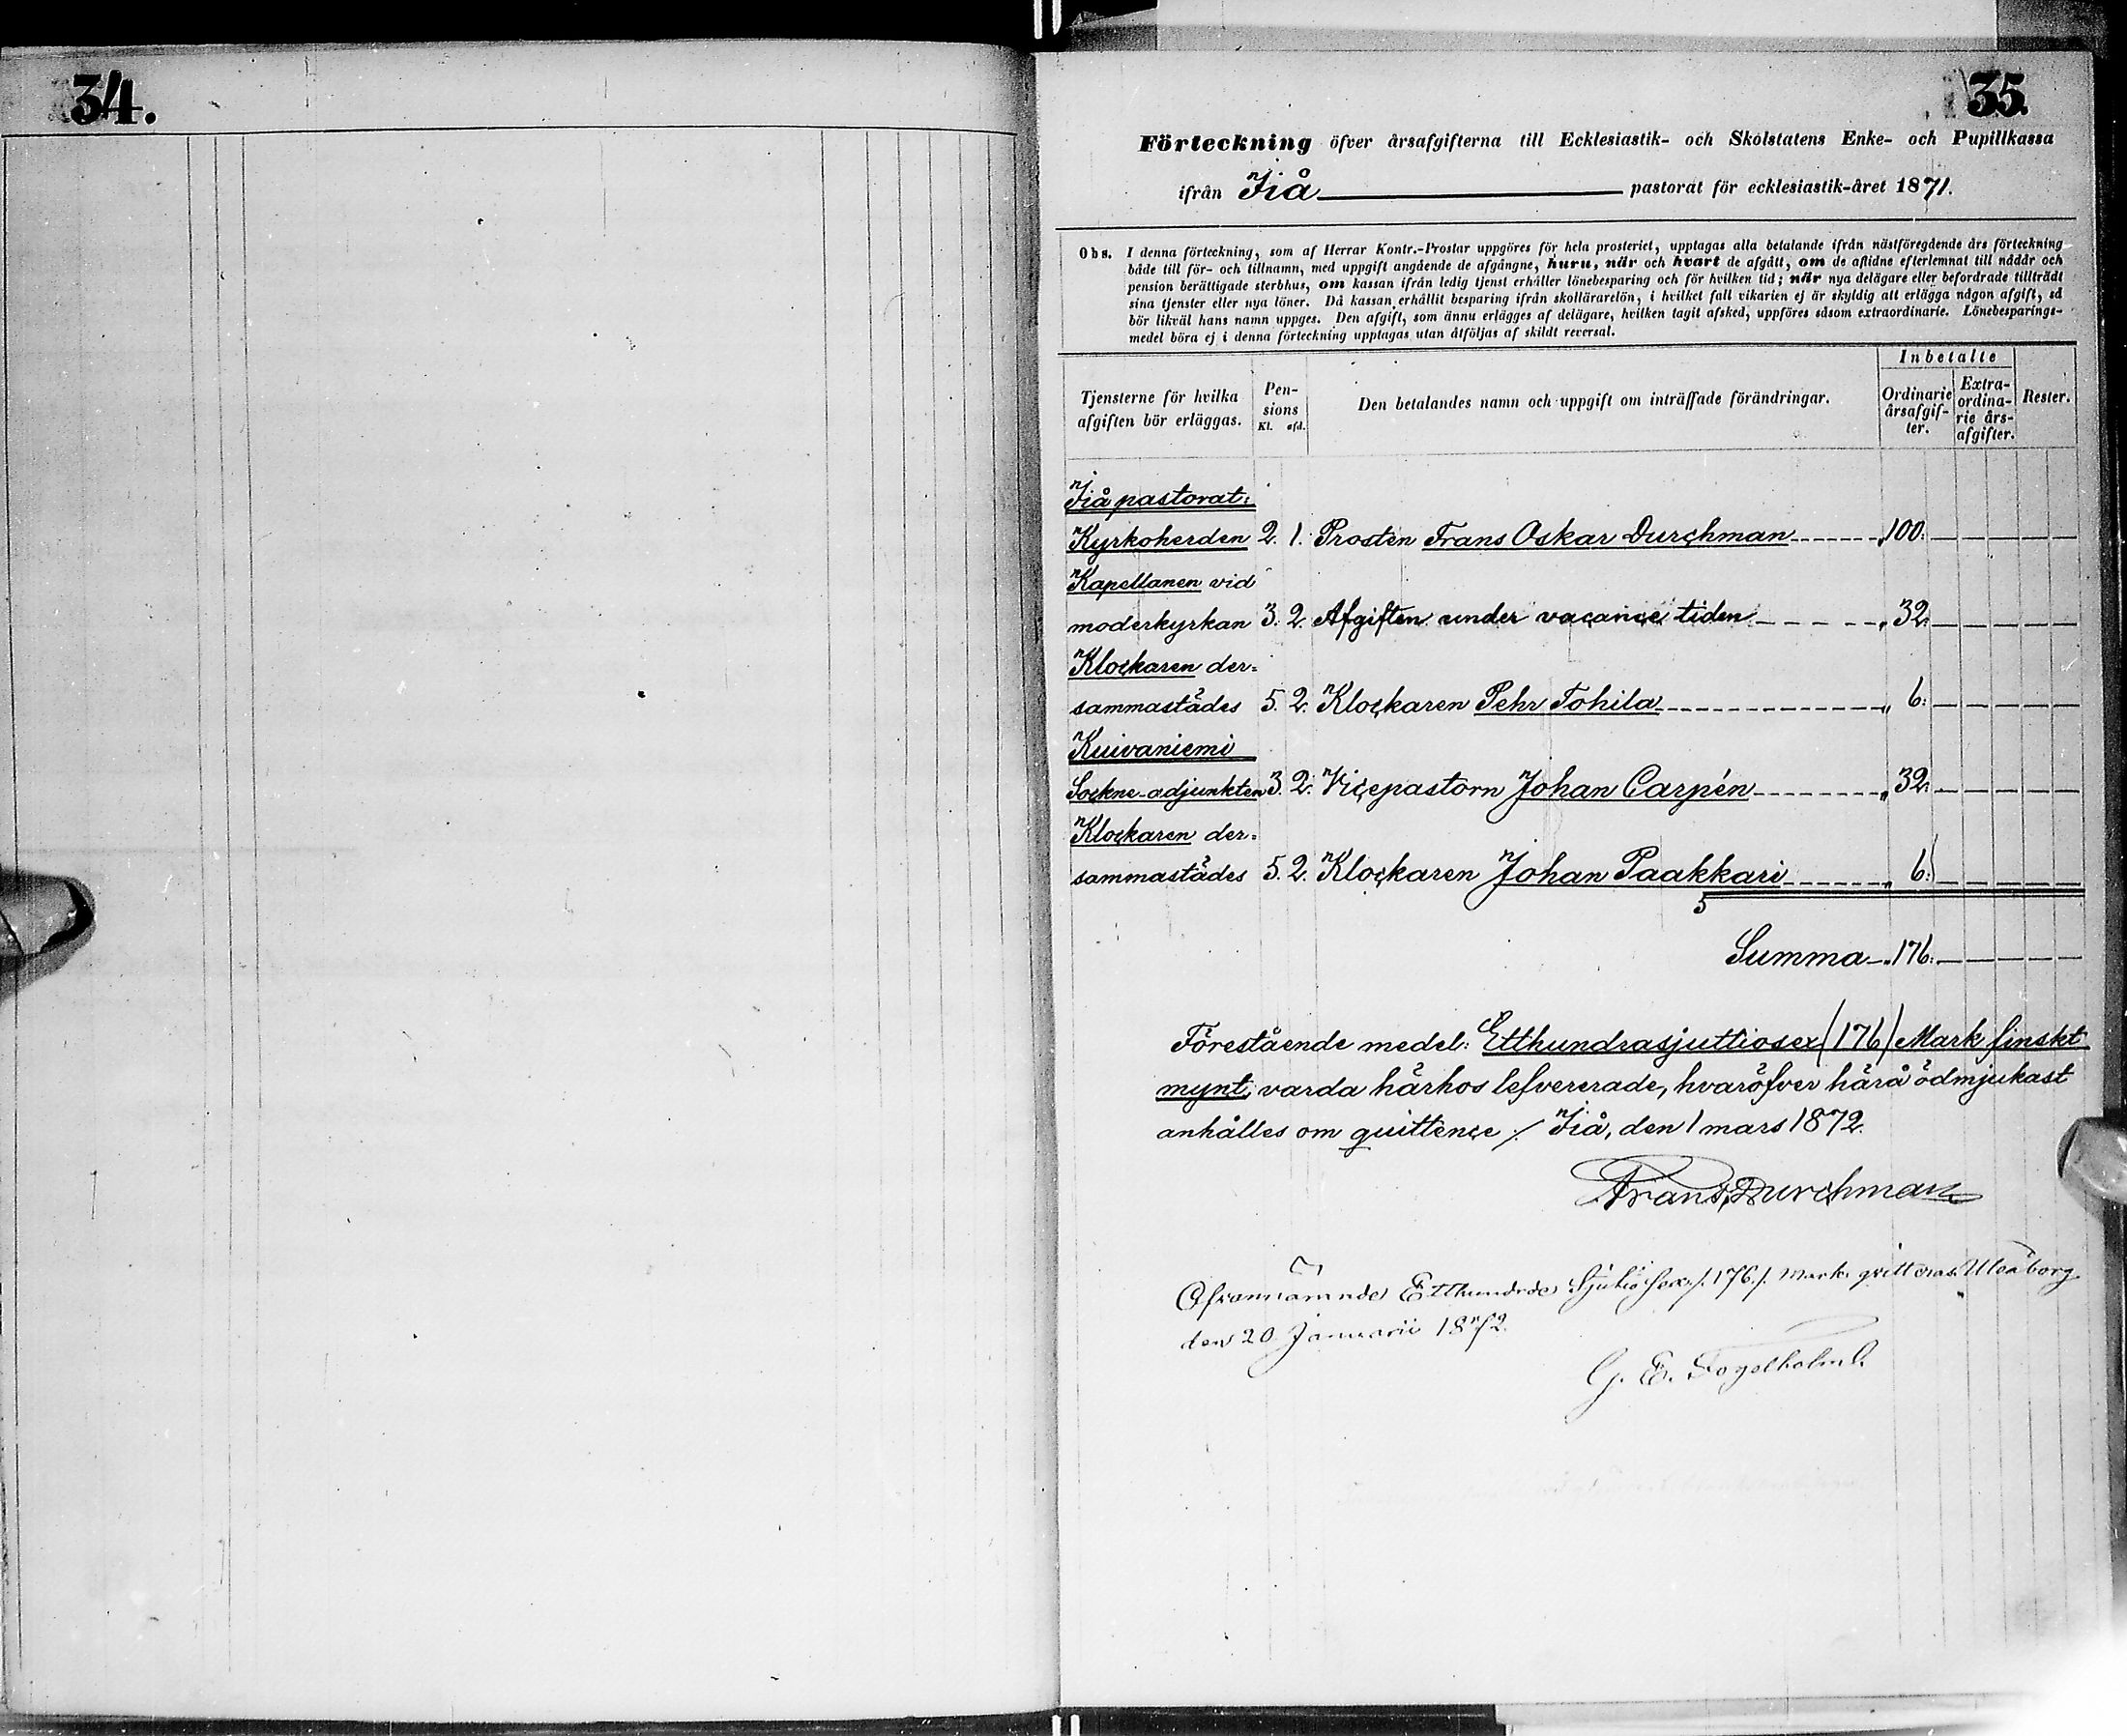 34.
35.
Förteckning öfver årsafgifterna till Ecklesiastik- och Skolstatens Enke- och Pupillkassa
ifrån Jiå pastorat för ecklesiastik-året 1871.
Obs. I denna förteckning, som af Herrar Kontr.-Prostar uppgöres för hela prosteriet, upptagas alla betalande ifrån nästföregående års förteckning
både till för- och tillnamn, med uppgift angående de afgångne, huru, när och hvart de afgått, om de aflidne efterlemnat till nådår och
pension berättigade sterbhus, om kassan ifrån ledig tjenst erhåller lönebesparing och för hvilken tid; när nya delägare eller befordrade tillträdt
sina tjenster eller nya löner. Då kassan erhållit besparing ifrån skollärarelön, i hvilket fall vikarien ej är skyldig att erlägga någon afgift, så
bör likväl hans namn uppges. Den afgift, som ännu erlägges af delägare, hvilken tagit afsked, uppföres såsom extraordinarie. Lönebesparings-
medel böra ej i denna förteckning upptagas utan åtföljas af skildt reversal.
Tjensterne för hvilka afgiften bör erläggas.
Pensions Kl. afd.
Den betalandes namn och uppgift om inträffade förändringar.
Inbetalte
Ordinarie årsafgifter.
Extraordinarie årsafgifter.
Rester.
Jiå pastorat:
Kyrkoherden 2. 1. Prosten Frans Oskar Durchman 100:
Kapellanen vid
moderkyrkan 3. 2. Afgiften under vacance tiden " 32:
Klockaren der=
sammastädes 5. 2. Klockaren Pehr Tohila " 6:
Kuivaniemi
Sockne-adjunkten 3. 2. Vicepastorn Johan Carpén " 32:
Klockaren der=
sammastädes 5. 2. Klockaren Johan Paakkari " 6:
5
Summa 176:
Förestående medel: Etthundrasjuttiosex (176) Mark finskt
mynt, varda härhos lefvererade, hvaröfver härå ödmjukast
anhålles om quittence ./. Jiå, den 1 mars 1872.
Frans Durchman
Ofvannämnde Etthundrade Sjutio sex /:176:/ Mark qvitteras Uleåborg
den 20 Januarii 1872.
G. E. Fogelholm